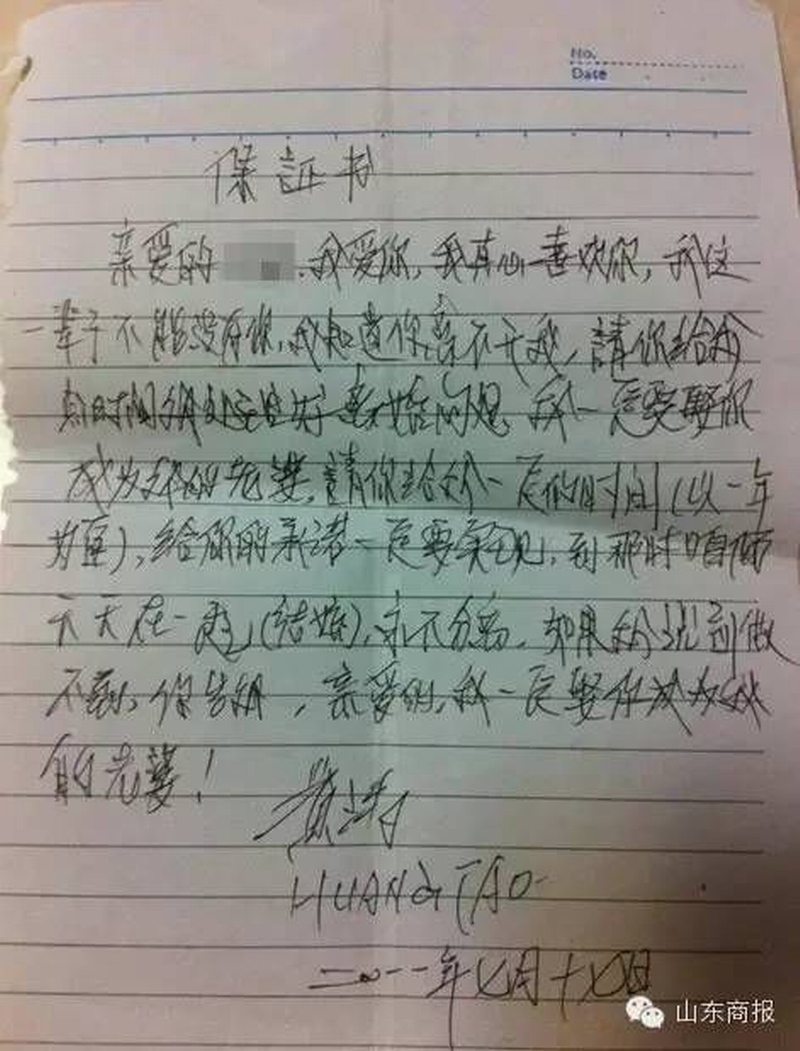 No.
Date
保证书
亲爱的 . 我爱你, 我真心喜欢你, 我这
一辈子不能没有你, 我知道你离不开我, 請你给我
点时间我处理好离婚的问题, 我一定要娶你
成为我的老婆, 請你给我一定的时间(以一年
为重), 给你的承诺一定要实现, 到那时咱俩
天天在一起(结婚), 永不分离, 如果我说到做
不到, 你告我, 亲爱的, 我一定娶你成为我
的老婆!
黄涛
HUANG TAO
二〇一一年七月十七日
山东商报